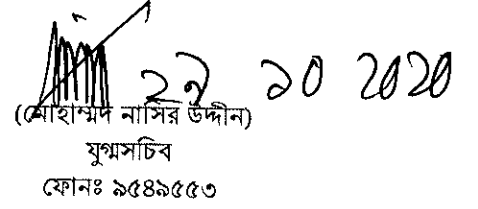 ১০ ২০২০
(মোহাম্মদ নাসির উদ্দীন)
যুগ্মসচিব
ফোনঃ ৯৫৪৯৫৫৩